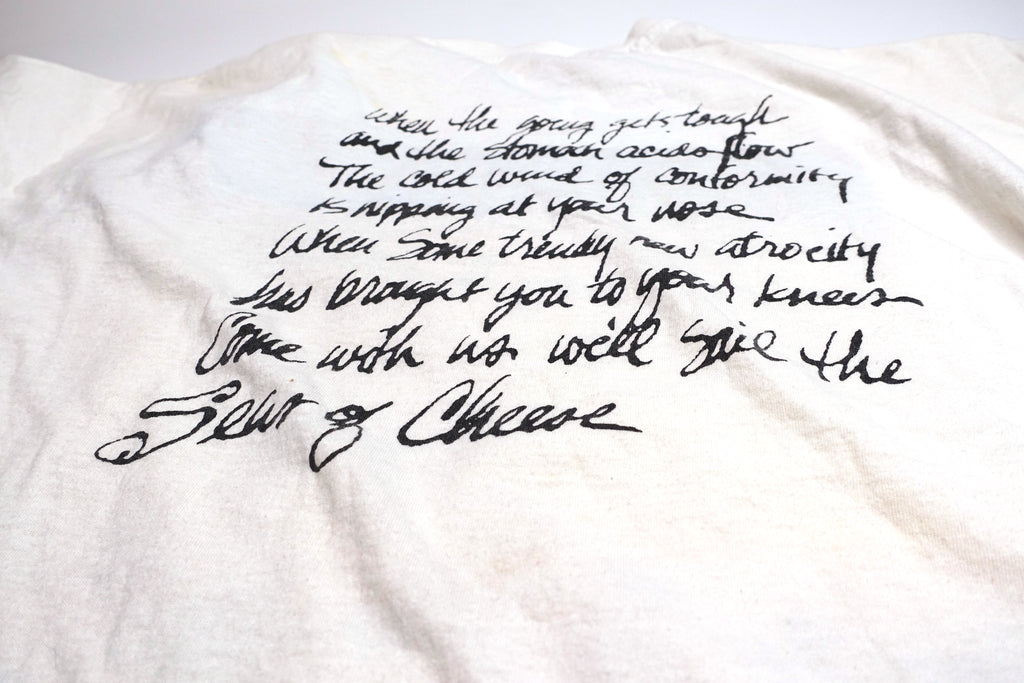 When the going gets tough
and the stomach acids flow
The cold wind of conformity
is nipping at your nose
When some trendy new atrocity
has brought you to your knees
Come with us we'll sail the
Seas of Cheese